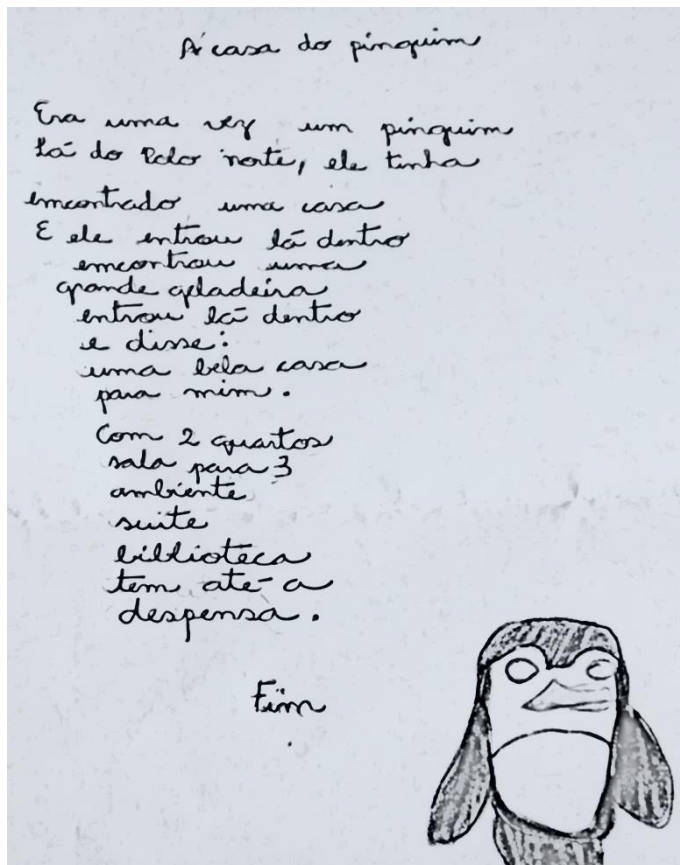 A casa do pinguim
Era uma vez um pinguim
Lá do Polo norte, ele tinha
emcontrado uma casa
E ele entrou lá dentro
emcontrou uma
grande geladeira
entrou lá dentro
e disse:
uma bela casa
para mim.
Com 2 quartos
sala para 3
ambiente
suite
biblioteca
tem até a
despensa.
Fim